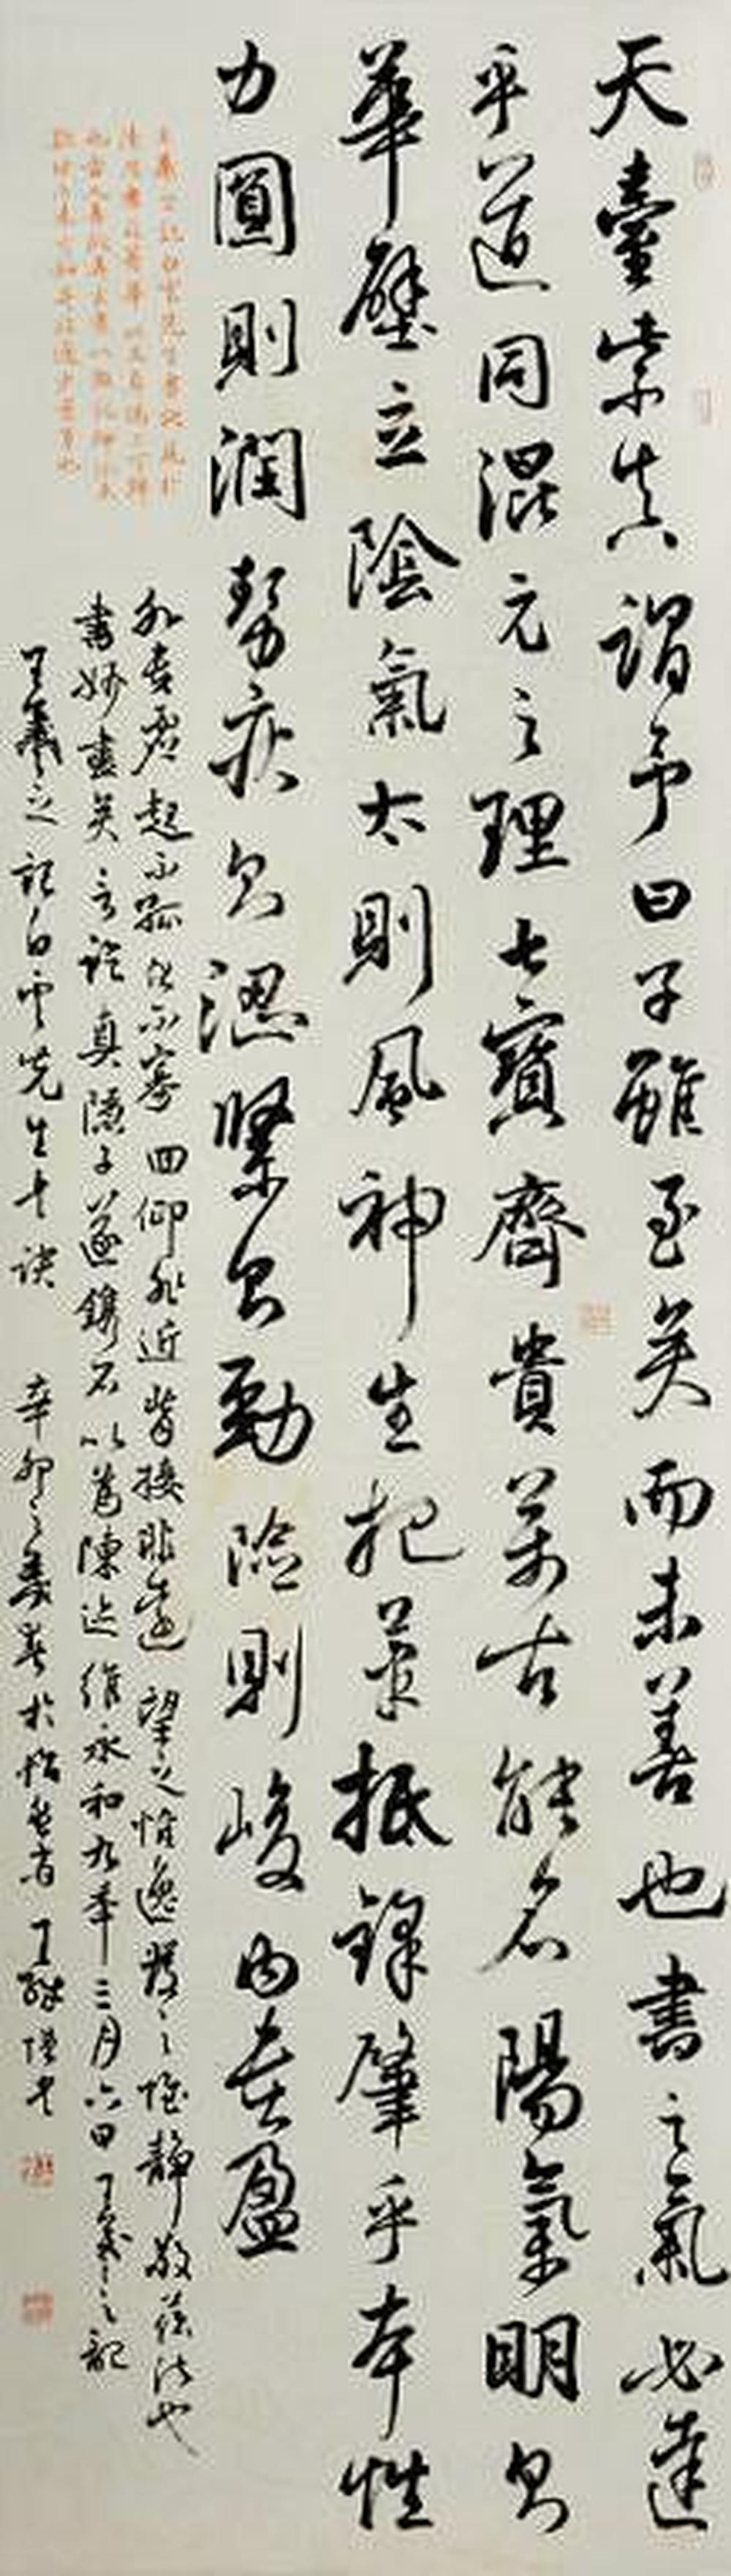 天臺紫真謂予曰子雖至矣而未善也書之氣必達
乎道同混元之理七寶齊貴萬古能名陽氣明則
華壁立陰氣太則風神生把筆抵鋒肇乎本性
力圓則潤勢疾則澀緊則勁險則峻內貴盈
外貴虛起不孤伏不寡回仰非近背接非遠望之惟逸發之惟靜敬茲法也
書妙盡矣言訖真隱子遂鐫石以為陳迹維永和九年三月六日王羲之記
王羲之記白雲先生書訣 辛卯之